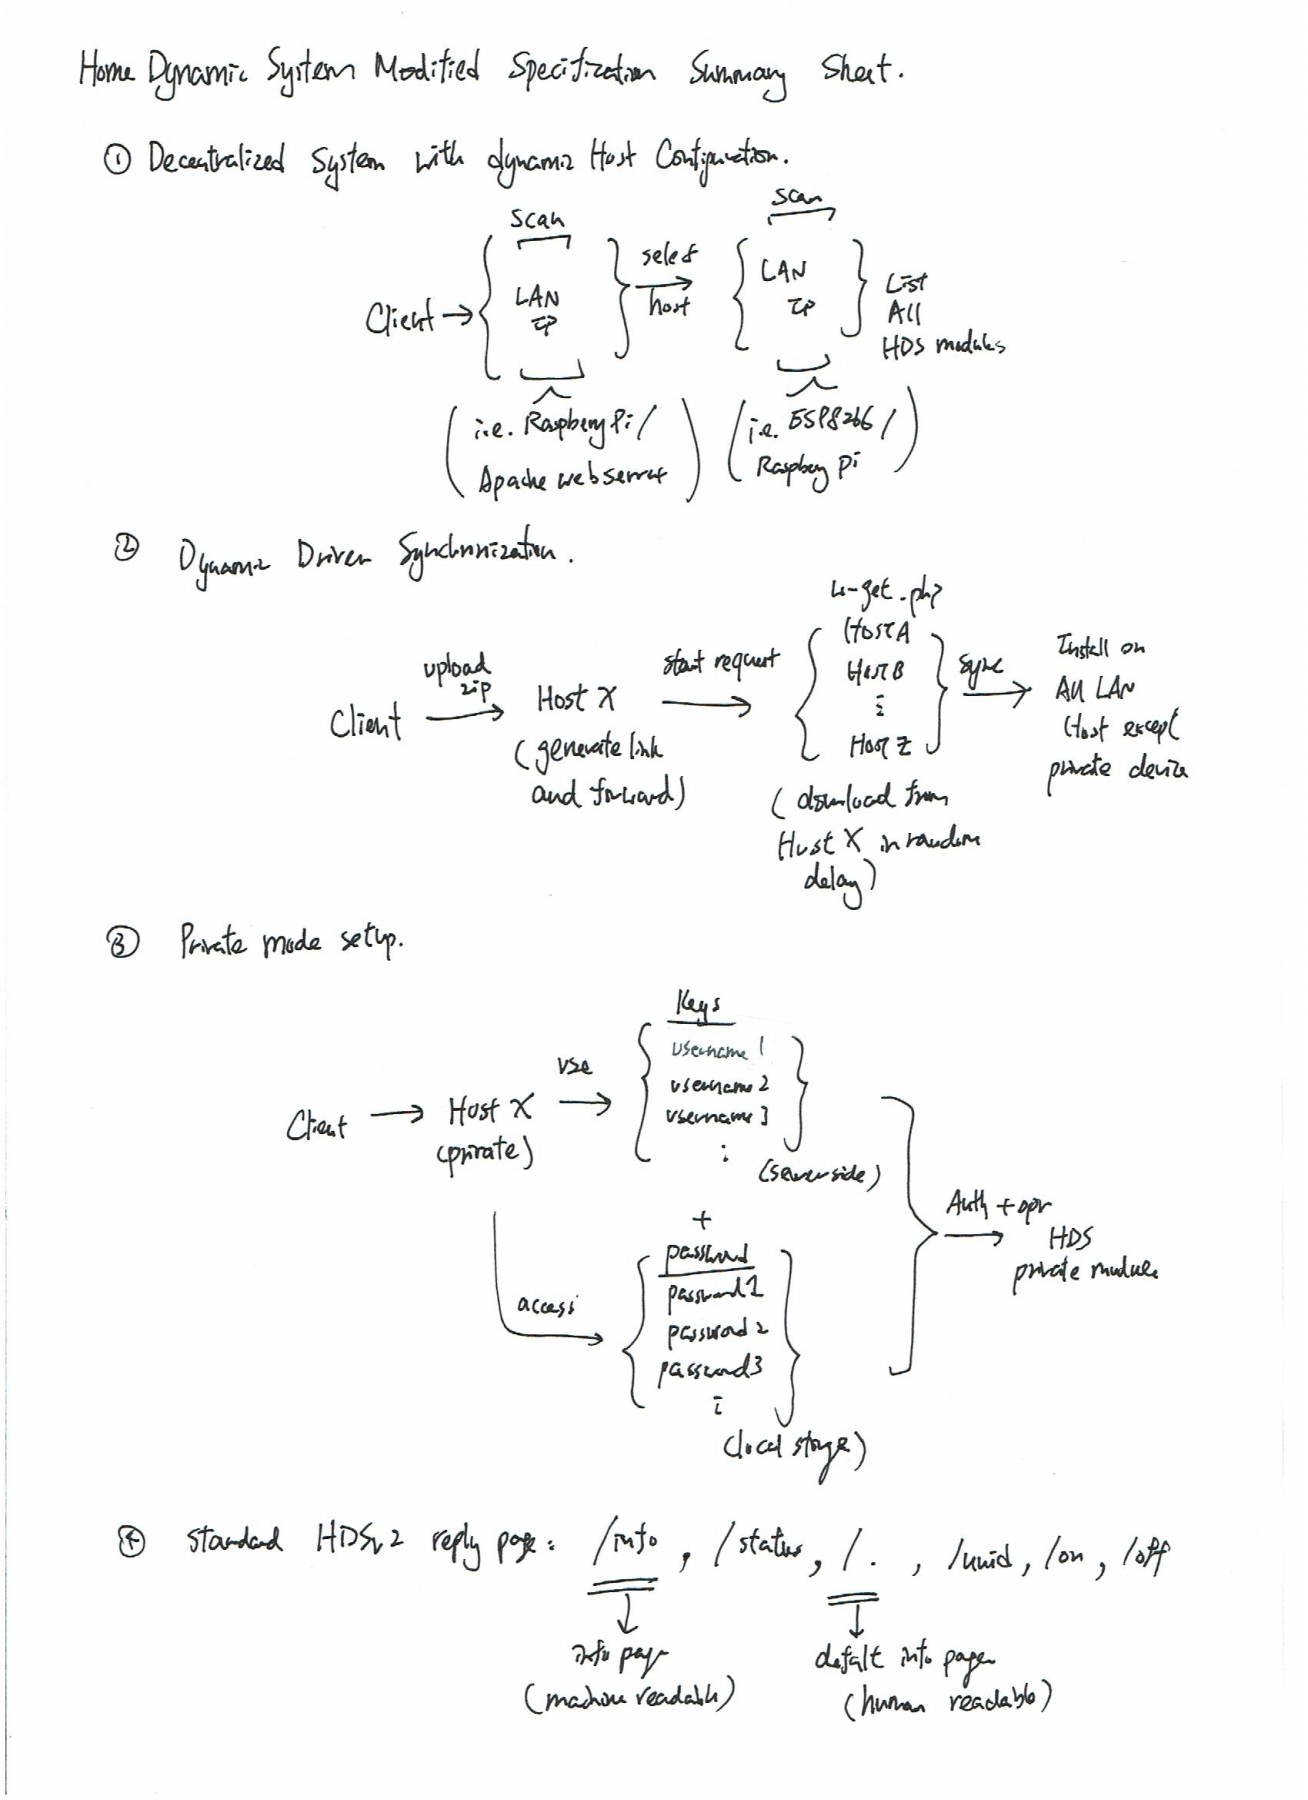 Home Dynamic System Modified Specification Summary Sheet.
① Decentralized System with dynamic Host Configuration.
scan
scan
Client → { LAN IP } select host { LAN IP } List All HDS modules
(i.e. Raspberry Pi / Apache webserver)
(i.e. ESP8266 / Raspberry Pi)
② Dynamic Driven Synchronization.
Client
upload zip
Host X
(generate link and forward)
start request
w-get.php
Host A
Host B
⋮
Host Z
(download from Host X in random delay)
sync
Install on
All LAN
Host except
private device
③ Private mode setup.
Client → Host X
(private)
use
Keys
username 1
username 2
username 3
⋮
(server side)
+
access
password
password1
password2
password3
⋮
(local storage)
Auth + opr
HDS
private module
④ Standard HDSv2 reply page: /info, /status, /. , /uuid, /on, /off
info page
(machine readable)
defalt info page
(human readable)